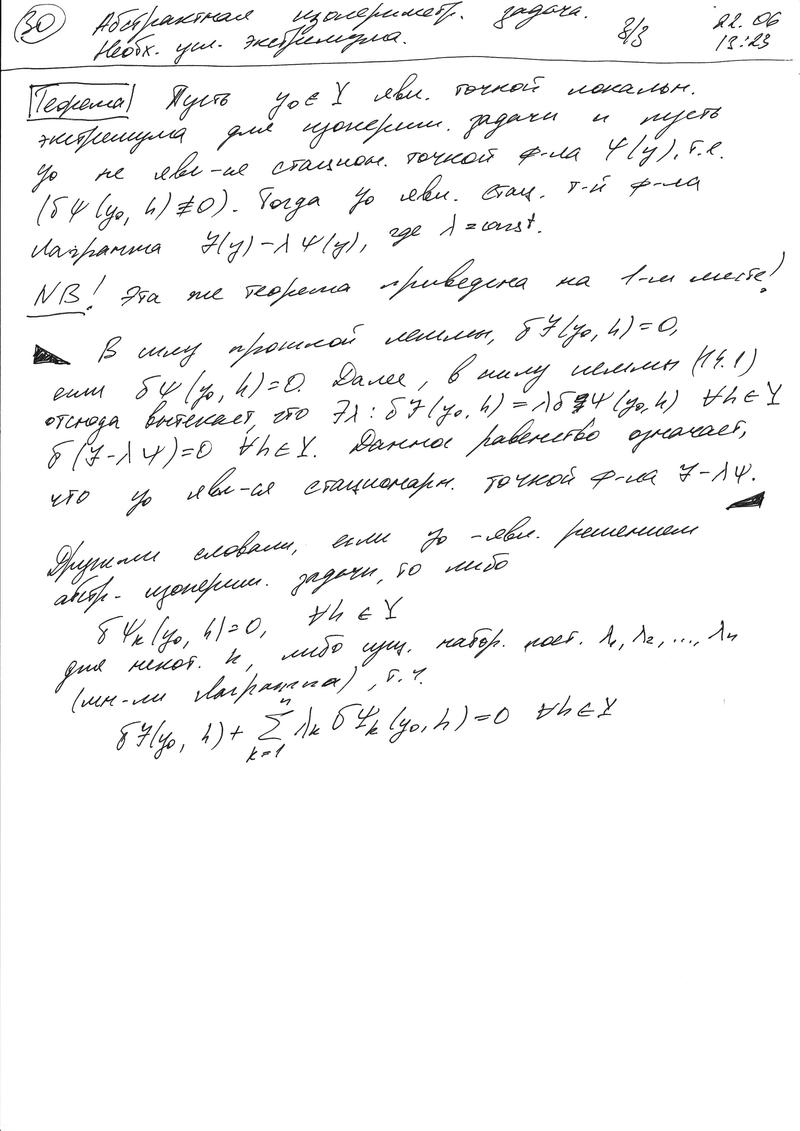 30 Абстрактная изопериметр. задача. 3/3 22.06
Необх. усл. экстремума. 13:23
Теорема Пусть y₀ ∈ Y явл. точкой локальн.
экстремума для изоперим. задачи и пусть
y₀ не явл-ся стацион. точкой ф-ла Ψ(y), т.е.
(δΨ(y₀, h) ≢ 0). Тогда y₀ явл. стац. т-й ф-ла
Лагранжа J(y) − λΨ(y), где λ = const.
NB! Эта же теорема приведена на 1-м месте!
В силу прошлой леммы, δJ(y₀, h) = 0,
если δΨ(y₀, h) = 0. Далее, в силу леммы (14.1)
отсюда вытекает, что ∃λ: δJ(y₀, h) = λδΨ(y₀, h) ∀h ∈ Y
δ(J − λΨ) = 0 ∀h ∈ Y. Данное равенство означает,
что y₀ явл-ся стационарн. точкой ф-ла J − λΨ.
Другими словами, если y₀ - явл. решением
абстр. изоперим. задачи, то либо
δΨₖ(y₀, h) = 0, ∀h ∈ Y
для некот. k, либо сущ. набор. пост. λ₁, λ₂, ..., λₙ
(мн-ли Лагранжа), т.ч.
δJ(y₀, h) + ∑ₖ₌₁ⁿ λₖ δΨₖ(y₀, h) = 0 ∀h ∈ Y